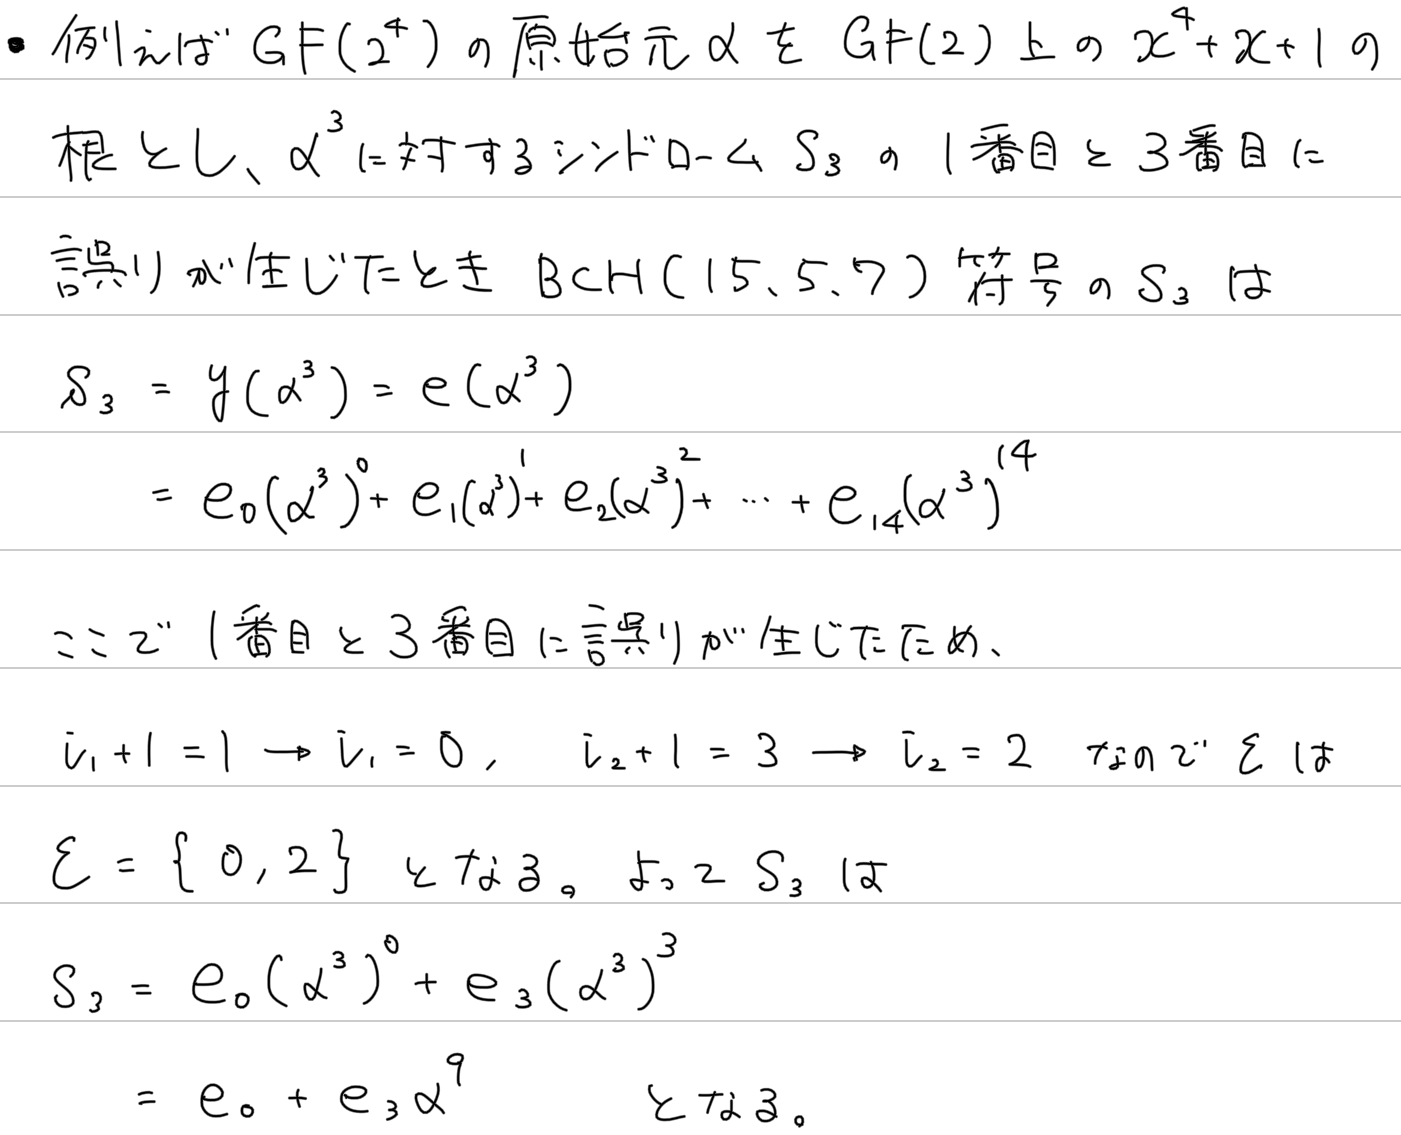 • 例えば GF(2⁴) の原始元 α を GF(2) 上の x⁴+x+1 の
根とし、α³に対するシンドローム S₃ の 1番目と3番目に
誤りが生じたとき BCH(15、5、7) 符号の S₃ は
S₃ = y(α³) = e(α³)
= e₀(α³)⁰+ e₁(α³)¹+ e₂(α³)²+ … + e₁₄(α³)¹⁴
ここで 1番目と3番目に誤りが生じたため、
i₁+1=1 → i₁=0, i₂+1=3 → i₂=2 なので ε は
ε = {0,2} となる。よって S₃ は
S₃ = e₀(α³)⁰ + e₃(α³)³
= e₀ + e₃α⁹ となる。